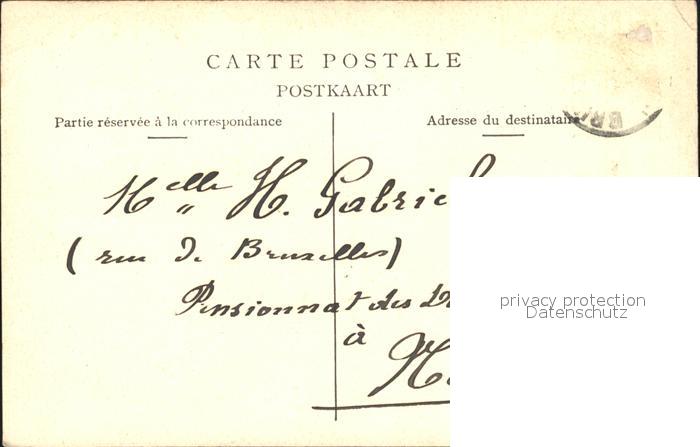 CARTE POSTALE
POSTKAART
Partie réservée à la correspondance
Adresse du destinataire
Melle H. Gabriel
(rue de Bruxelles)
Pensionnat des
à
privacy protection
Datenschutz